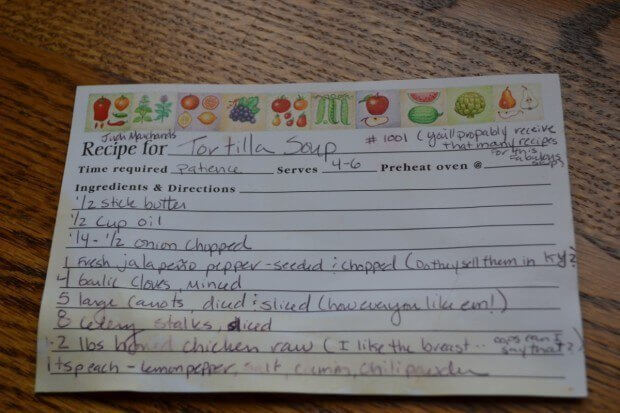 Judy Marchand's
Recipe for Tortilla Soup #1001 (you'll propably receive that many recipes for this fabulous soup)
Time required patience Serves 4-6 Preheat oven @
Ingredients & Directions
1/2 stick butter
1/2 cup oil
1/4 - 1/2 onion chopped
1 Fresh jalapeño pepper - seeded & chopped (Do they sell them in KY?
4 Garlic cloves, minced
5 large carrots diced & sliced (however you like em!)
8 celery stalks, sliced
1-2 lbs boned chicken raw (I like the breast.. oops can I say that?)
1 tsp each - lemon pepper, salt, cumin, chili powder